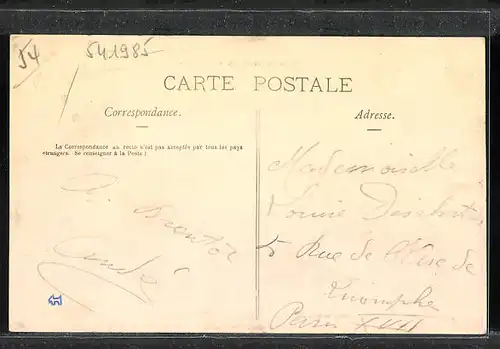 54
541985
CARTE POSTALE
Correspondance.
Adresse.
La Correspondance au recto n'est pas acceptée par tous les pays
étrangers. (Se renseigner à la Poste)
A Bientôt
André
Mademoiselle
Louise
5 Rue de l'Arc de
Triomphe
Paris XVII